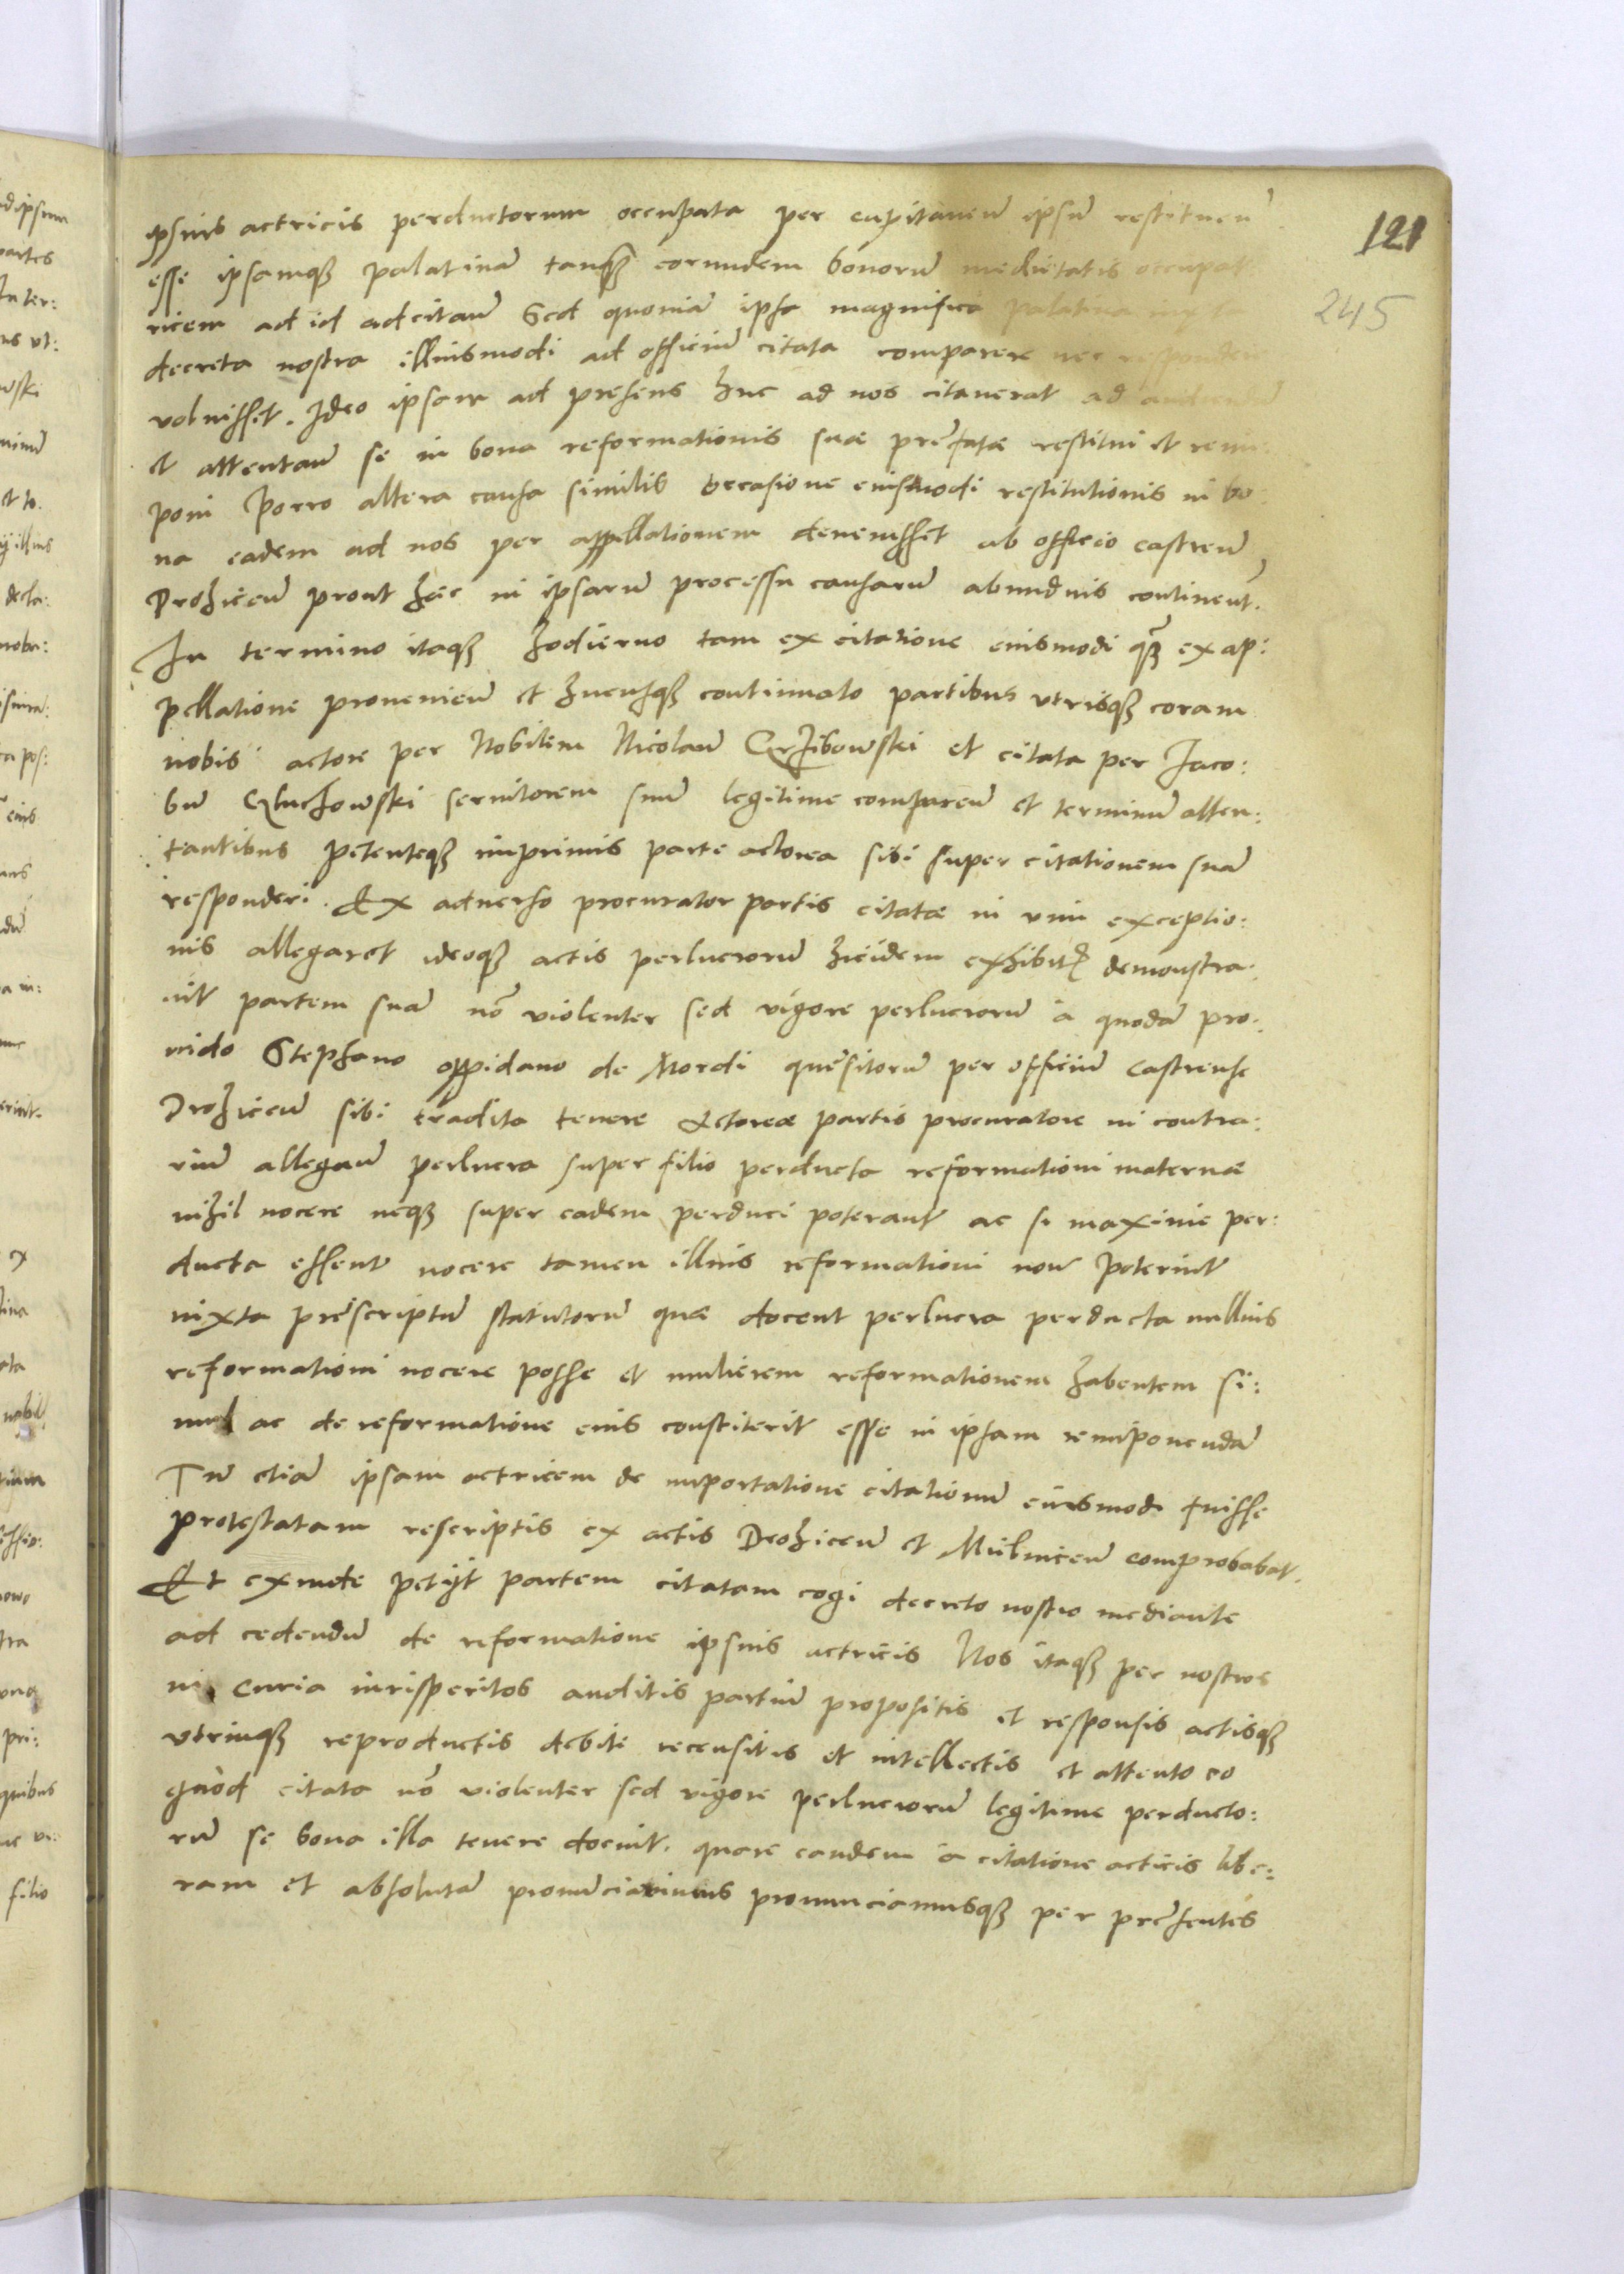 121
245
ipsius actricis perductorum occupata per capitaneū ipsū restituen̄
esse ipsamqꝫ palatinā tanqꝫ eorundem bonorū medietatis occupat
ricem ad id adcitan̄ Sed quoniā ipsa magnifica palatina iuxta
decreta nostra illiusmodi ad officiū citata comparere nec responden
voluisset. Ideo ipsam ad presens huc ad nos citauerat ad audien̄
et attentan̄ se in bona reformationis suæ præfatæ restitui et reim
poni Porro altera causa similis occasione eiusmodi restitutionis in bo:
na eadem ad nos per appellationem deuenisset ab officio castren̄
Drohicen̄ prout hæc in ipsarū processu causarū abundius continent̄.
In termino itaqꝫ hodierno tam ex citatione eiusmodi qꝫ ex ap:
pellatione prouenien̄ et hucusqꝫ continuato partibus vtrisqꝫ coram
nobis actore per Nobilem Nicolaū Grzibowski et citata per Iaco:
bū Gluchowski seruitorem suū legitime comparen̄ et terminū atten:
tantibus petenteqꝫ inprimis parte actorea sibi super citationem suā
responderi. Ex aduerso procurator partis citatæ in vim exceptio:
nis allegaret ideoqꝫ actis perlucrorū hicidem exhibit demonstra:
uit partem suā nō violenter sed vigore perlucrorū a quodā pro:
uido Stephano oppidano de Mordi quesitorū per officiū castrense
Drohicen̄ sibi tradita tenere Actoreæ partis procuratore in contra:
riū allegan̄ perlucra super filio perducta reformationi maternæ
nihil nocere neqꝫ super eadem perduci poterant ac si maxime per:
ducta essent nocere tamen illius reformationi non poterint
iuxta præscriptū statutorū quæ docent perlucra perducta nullius
reformationi nocere posse et mulierem reformationem habentem si:
mul ac de reformatione eius constiterit esse in ipsam reimponendā
Tū etiā ipsam actricem de importatione citationū eiusmodi fuisse
protestatam rescriptis ex actis Drohicen̄ et Mielnicen̄ comprobabat.
Et exinde petijt partem citatam cogi decreto nostro mediante
ad cedendū de reformatione ipsius actricis Nos itaqꝫ per nostros
in curia iurisperitos auditis partiū propositis et responsis actisqꝫ
vtrinqꝫ reproductis debite recensitis et intellectis et attento eo
quod citata nō violenter sed vigore perlucrorū legitime perducto:
rū se bona illa tenere docuit. quare eandem a citatione actricis libe:
ram et absolutā pronunciauimus pronunciamusqꝫ per præsentes